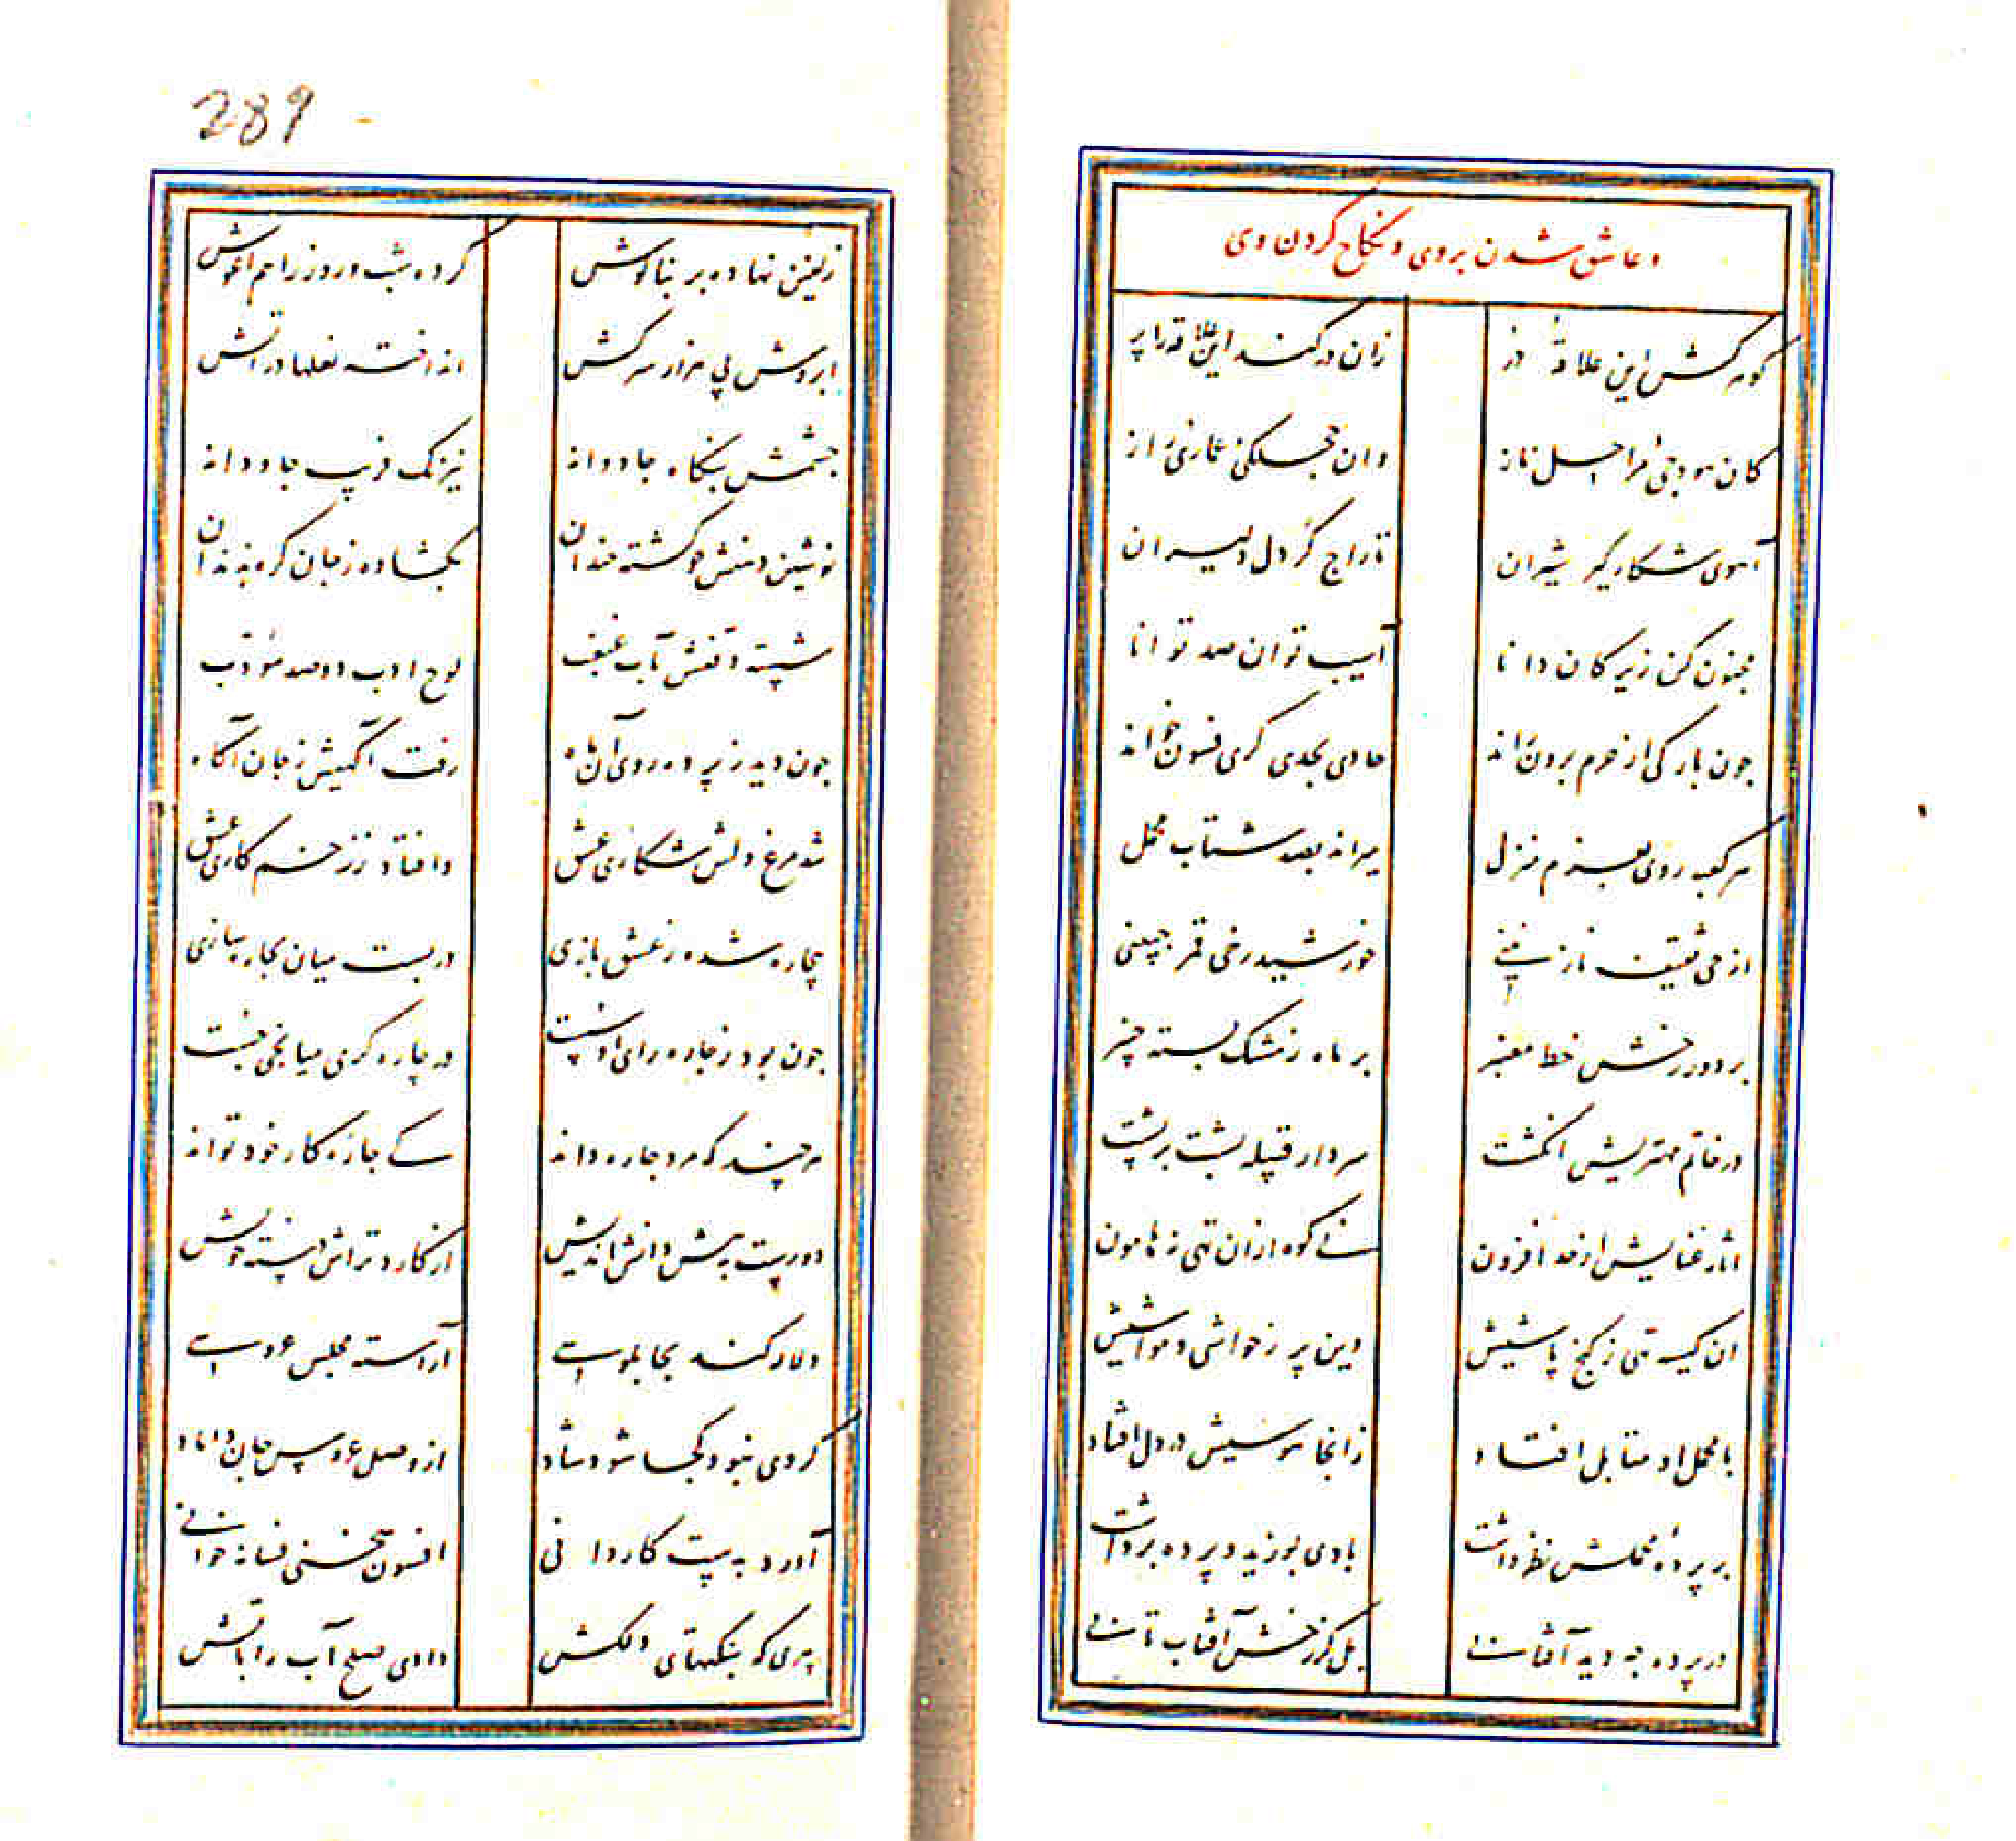 و عاشق شدن بر وی و نکاح کردن وی
گوهرکش این علاقه در زان در کند این علاقه را پر
کان هودجی مراحل ناز وان حجلگی عماری راز
آهوی شکارگیر شیران تاراج گر دل دلیران
مجنون کن زیرکان دانا آسیب توان صد توانا
چون بارگی از حرم برون راند حادی بحدی گری فسون خواند
هر کعبه روی بعزم منزل میراند بصد شتاب محمل
از حی ثقیف نازنینی خورشید رخی قمر جبینی
بر دور رخش خط معنبر بر ماه ز مشک بسته چنبر
در خاتم مهتریش انگشت سردار قبیله پشت بر پشت
آثار غنایش از حد افزون نی کوه ازان تهی نه هامون
آن کیسه تهی ز گنج پاشیش وین پر ز حواشی و مواشیش
با محمل او مقابل افتاد زانجا هوسیش در دل افتاد
بر پرده محملش نظر داشت بادی بوزید و پرده برداشت
در پرده چه دید آفتابی بل کز رخش آفتاب تابی
289
زلفین نهاده بر بناگوش کرده شب و روز را هم آغوش
ابروش پی هزار سرکش انداخته نعلها در آتش
چشمش بنگاه جادوانه نیرنگ فریب جاودانه
نوشین دهنش چو گشته خندان بگشاده ز جان گره بدندان
شسته ذقنش بآب غبغب لوح ادب دو صد مؤدب
چون دید ز پرده روی آن ماه رفت آگهیش ز جان آگاه
شد مرغ دلش شکاری عشق و افتاد ز زخم کاری عشق
بیچاره شده ز عشق بازی دربست میان بچاره سازی
چون بود ز چاره رای او سست در چاره گری میانجی جست
هر چند که مرد چاره داند کی چاره کار خود تواند
دورست به پیش دانش اندیش از کارد تراش دسته خویش
دلاله کند بچاپلوسی آراسته مجلس عروسی
گر وی نبود کجا شود شاد از وصل عروس جان داماد
آورد بدست کاردانی افسون سخنی فسانه خوانی
پیری که بنکتهای دلکش دادی صلح آب را باتش